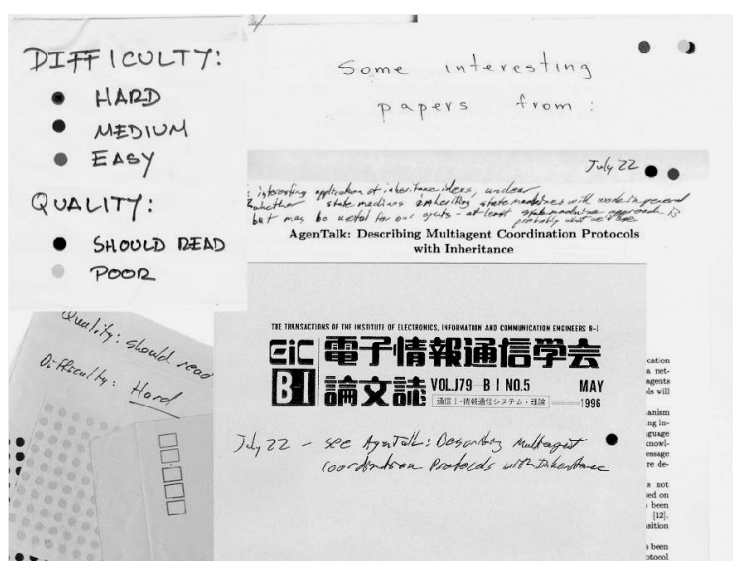 DIFFICULTY:
HARD
MEDIUM
EASY
QUALITY:
SHOULD READ
POOR
Some interesting
papers from:
July 22
interesting application of inheritance ideas, unclear
whether state machines inheriting state machines will work in general
but may be useful for our agents - at least state machine approach is
probably what we'll use
AgenTalk: Describing Multiagent Coordination Protocols
with Inheritance
Quality: should read
Difficulty: Hard
THE TRANSACTIONS OF THE INSTITUTE OF ELECTRONICS, INFORMATION AND COMMUNICATION ENGINEERS B-I
EiC 電子情報通信学会
B-I 論文誌 VOL.J79-B-I NO.5 MAY
通信I-情報通信システム・理論 1996
July 22 - see AgenTalk: Describing Multiagent
Coordination Protocols with Inheritance
cation
a net-
agents
ols will
anism
ng in-
guage
knowl-
essage
re de-
s not
sed on
been
[12].
sition
s been
otocol